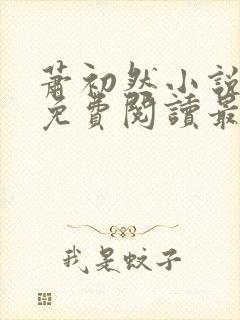 蕭初然小說
免費閱讀最
我是蚊子